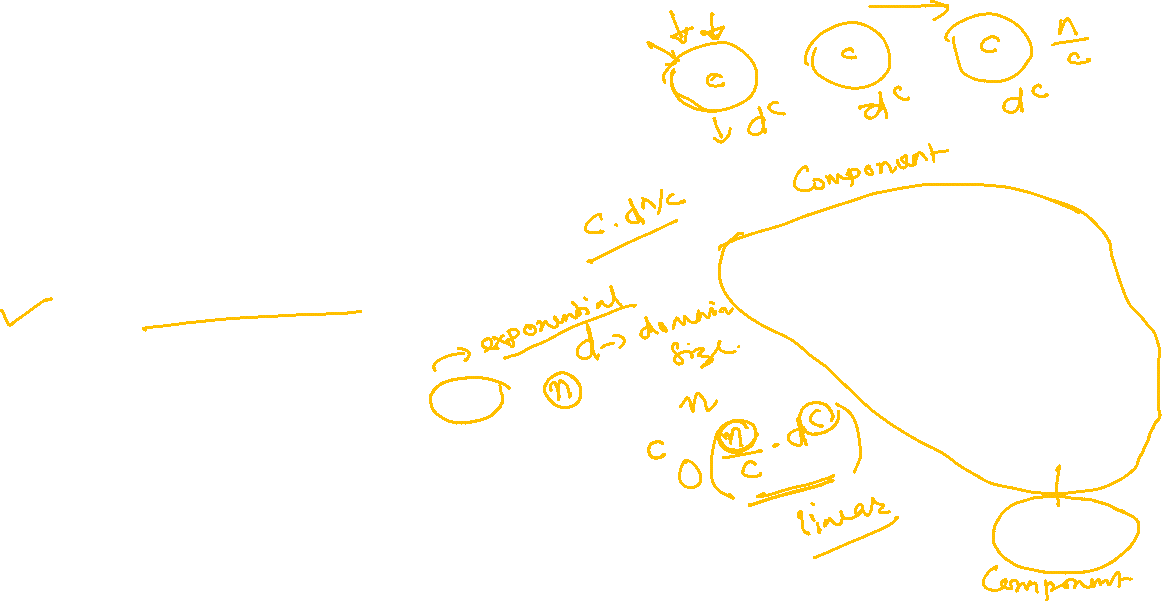 c c c n/c
d^c d^c d^c
Component
c. d^n/c
exponential
d → domain
size.
n
n
c O(n/c · d^c)
linear
Component